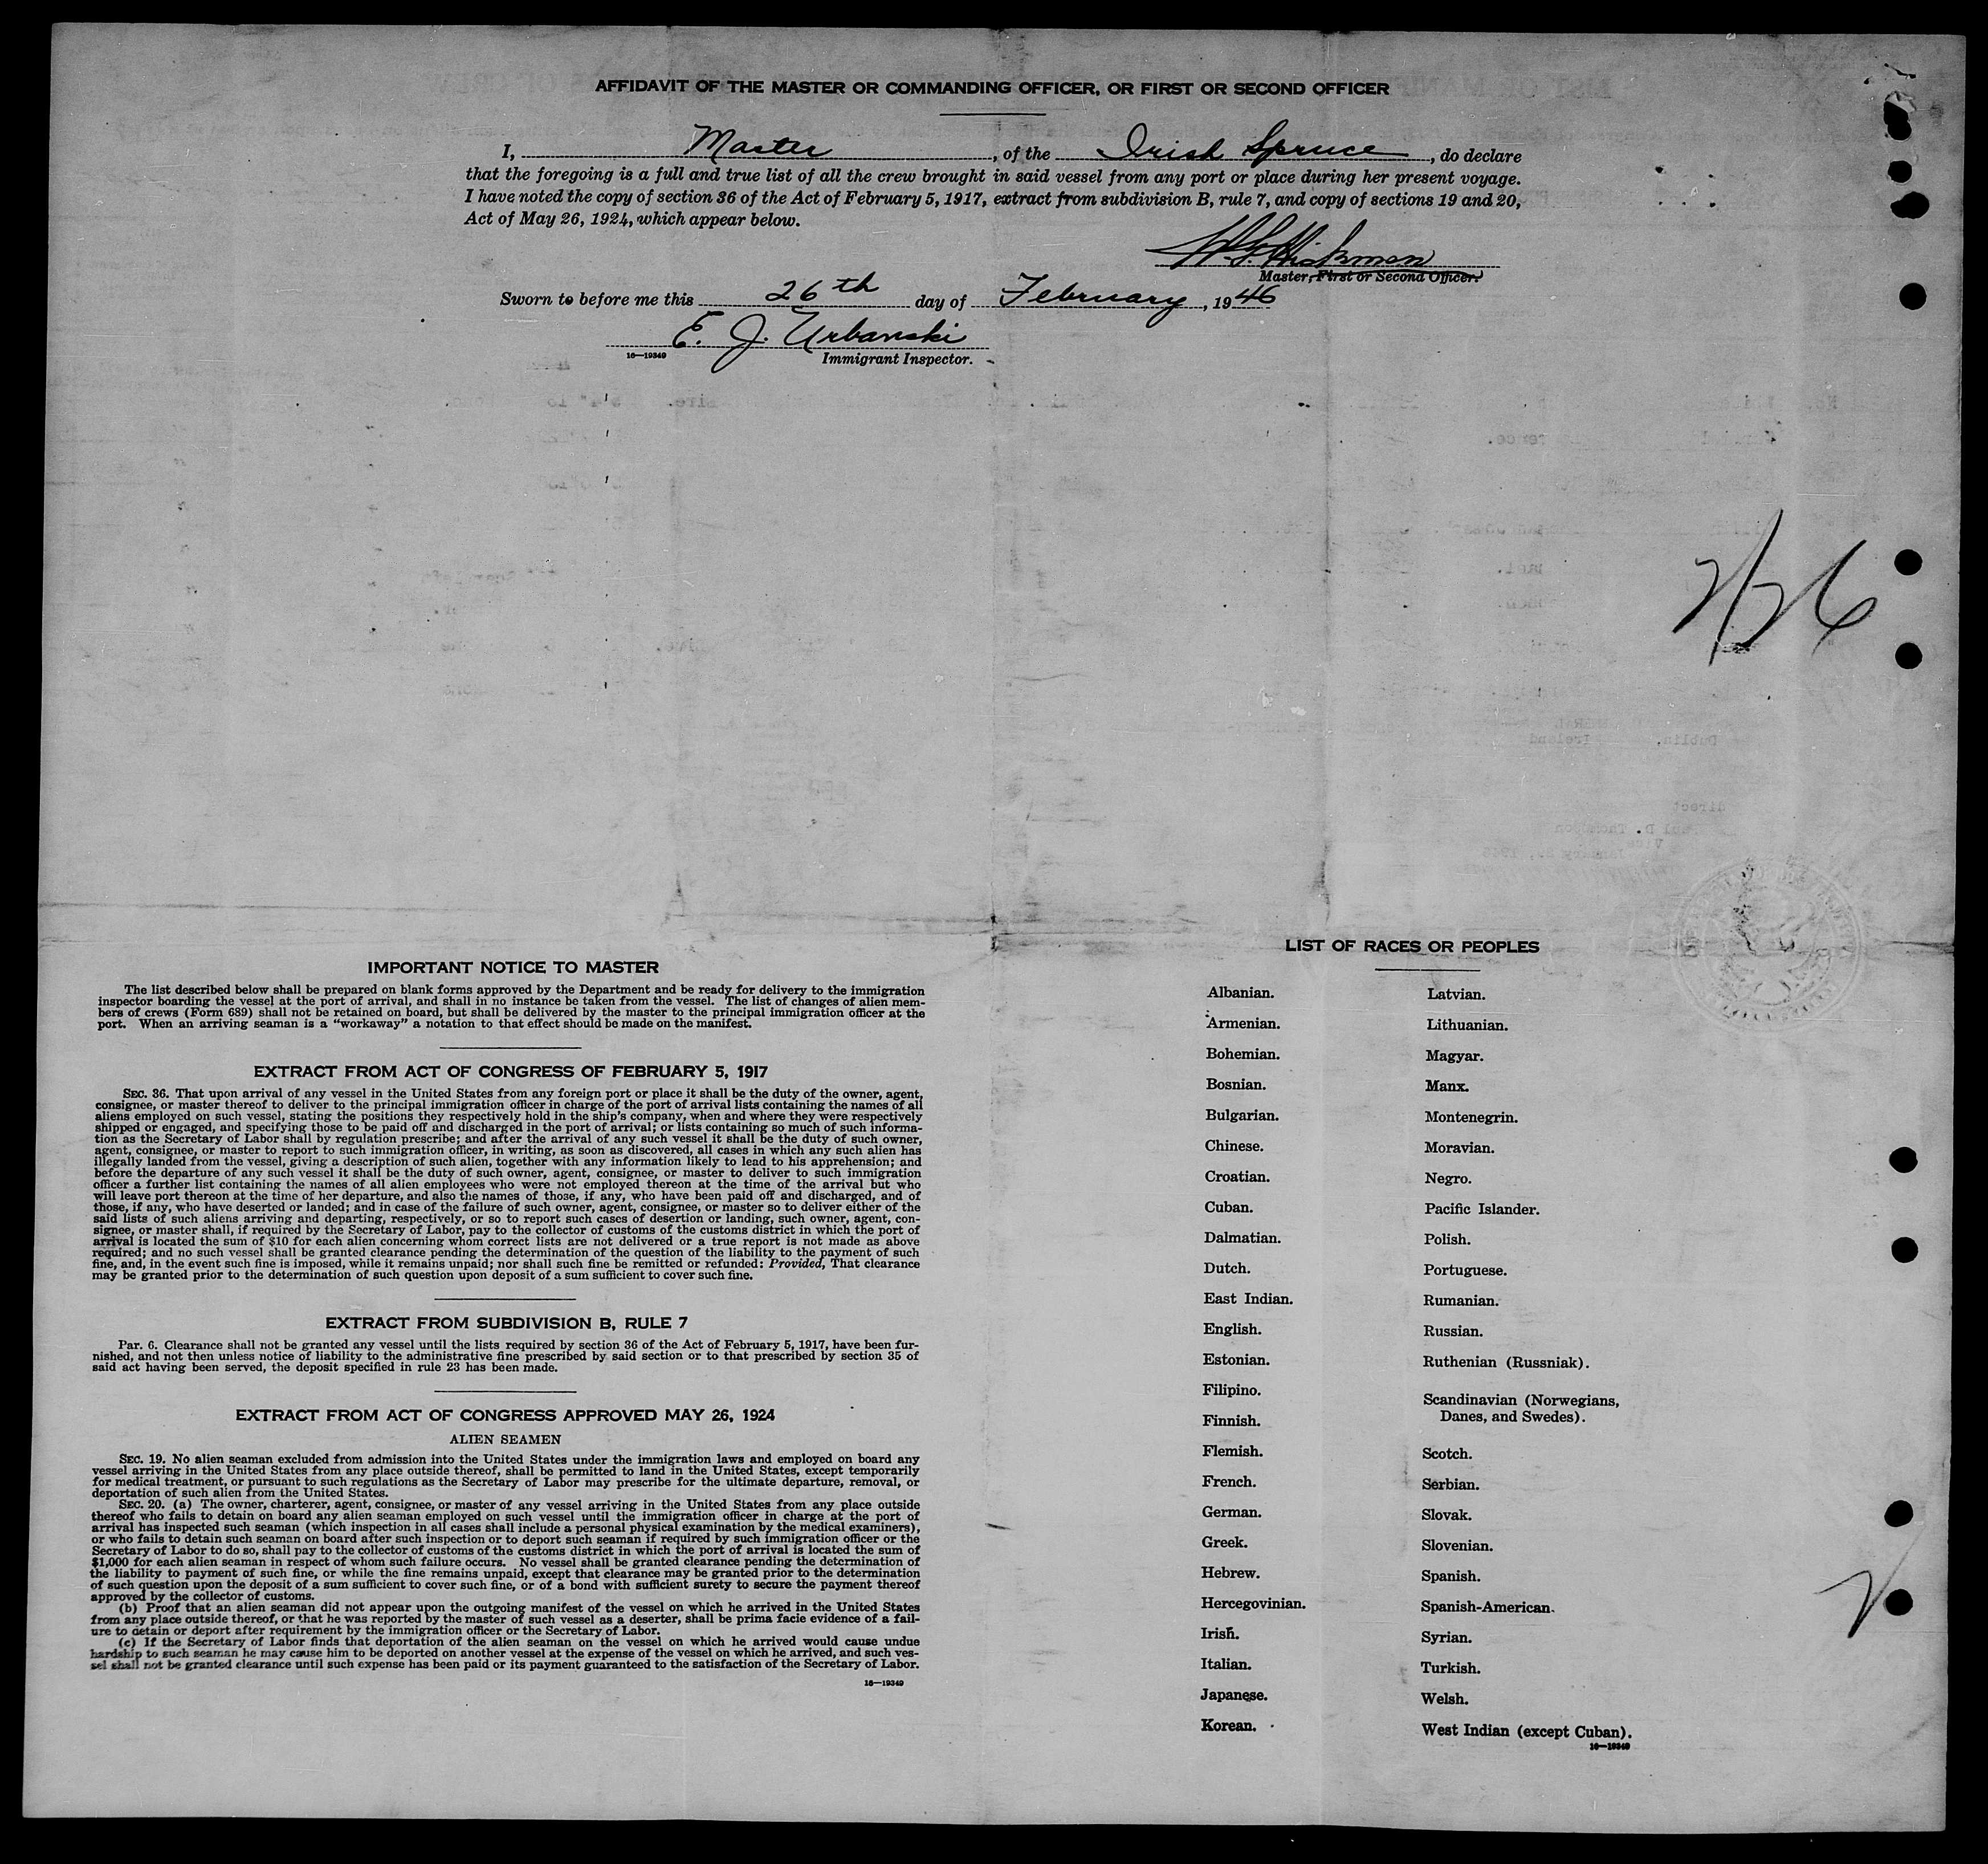 AFFIDAVIT OF THE MASTER OR COMMANDING OFFICER, OR FIRST OR SECOND OFFICER
I, Master, of the Irish Spruce, do declare
that the foregoing is a full and true list of all the crew brought in said vessel from any port or place during her present voyage.
I have noted the copy of section 36 of the Act of February 5, 1917, extract from subdivision B, rule 7, and copy of sections 19 and 20,
Act of May 26, 1924, which appear below.
Hickman
Master, First or Second Officer.
Sworn to before me this 26th day of February, 1946
E. J. Urbanski
16—19349 Immigrant Inspector.
2/26
IMPORTANT NOTICE TO MASTER
The list described below shall be prepared on blank forms approved by the Department and be ready for delivery to the immigration
inspector boarding the vessel at the port of arrival, and shall in no instance be taken from the vessel. The list of changes of alien mem-
bers of crews (Form 689) shall not be retained on board, but shall be delivered by the master to the principal immigration officer at the
port. When an arriving seaman is a "workaway" a notation to that effect should be made on the manifest.
EXTRACT FROM ACT OF CONGRESS OF FEBRUARY 5, 1917
SEC. 36. That upon arrival of any vessel in the United States from any foreign port or place it shall be the duty of the owner, agent,
consignee, or master thereof to deliver to the principal immigration officer in charge of the port of arrival lists containing the names of all
aliens employed on such vessel, stating the positions they respectively hold in the ship's company, when and where they were respectively
shipped or engaged, and specifying those to be paid off and discharged in the port of arrival; or lists containing so much of such informa-
tion as the Secretary of Labor shall by regulation prescribe; and after the arrival of any such vessel it shall be the duty of such owner,
agent, consignee, or master to report to such immigration officer, in writing, as soon as discovered, all cases in which any such alien has
illegally landed from the vessel, giving a description of such alien, together with any information likely to lead to his apprehension; and
before the departure of any such vessel it shall be the duty of such owner, agent, consignee, or master to deliver to such immigration
officer a further list containing the names of all alien employees who were not employed thereon at the time of the arrival but who
will leave port thereon at the time of her departure, and also the names of those, if any, who have been paid off and discharged, and of
those, if any, who have deserted or landed; and in case of the failure of such owner, agent, consignee, or master so to deliver either of the
said lists of such aliens arriving and departing, respectively, or so to report such cases of desertion or landing, such owner, agent, con-
signee, or master shall, if required by the Secretary of Labor, pay to the collector of customs of the customs district in which the port of
arrival is located the sum of $10 for each alien concerning whom correct lists are not delivered or a true report is not made as above
required; and no such vessel shall be granted clearance pending the determination of the question of the liability to the payment of such
fine, and, in the event such fine is imposed, while it remains unpaid; nor shall such fine be remitted or refunded: Provided, That clearance
may be granted prior to the determination of such question upon deposit of a sum sufficient to cover such fine.
EXTRACT FROM SUBDIVISION B, RULE 7
Par. 6. Clearance shall not be granted any vessel until the lists required by section 36 of the Act of February 5, 1917, have been fur-
nished, and not then unless notice of liability to the administrative fine prescribed by said section or to that prescribed by section 35 of
said act having been served, the deposit specified in rule 23 has been made.
EXTRACT FROM ACT OF CONGRESS APPROVED MAY 26, 1924
ALIEN SEAMEN
SEC. 19. No alien seaman excluded from admission into the United States under the immigration laws and employed on board any
vessel arriving in the United States from any place outside thereof, shall be permitted to land in the United States, except temporarily
for medical treatment, or pursuant to such regulations as the Secretary of Labor may prescribe for the ultimate departure, removal, or
deportation of such alien from the United States.
SEC. 20. (a) The owner, charterer, agent, consignee, or master of any vessel arriving in the United States from any place outside
thereof who fails to detain on board any alien seaman employed on such vessel until the immigration officer in charge at the port of
arrival has inspected such seaman (which inspection in all cases shall include a personal physical examination by the medical examiners),
or who fails to detain such seaman on board after such inspection or to deport such seaman if required by such immigration officer or the
Secretary of Labor to do so, shall pay to the collector of customs of the customs district in which the port of arrival is located the sum of
$1,000 for each alien seaman in respect of whom such failure occurs. No vessel shall be granted clearance pending the determination of
the liability to payment of such fine, or while the fine remains unpaid, except that clearance may be granted prior to the determination
of such question upon the deposit of a sum sufficient to cover such fine, or of a bond with sufficient surety to secure the payment thereof
approved by the collector of customs.
(b) Proof that an alien seaman did not appear upon the outgoing manifest of the vessel on which he arrived in the United States
from any place outside thereof, or that he was reported by the master of such vessel as a deserter, shall be prima facie evidence of a fail-
ure to detain or deport after requirement by the immigration officer or the Secretary of Labor.
(c) If the Secretary of Labor finds that deportation of the alien seaman on the vessel on which he arrived would cause undue
hardship to such seaman he may cause him to be deported on another vessel at the expense of the vessel on which he arrived, and such ves-
sel shall not be granted clearance until such expense has been paid or its payment guaranteed to the satisfaction of the Secretary of Labor.
16—19349
LIST OF RACES OR PEOPLES
Albanian.
Armenian.
Bohemian.
Bosnian.
Bulgarian.
Chinese.
Croatian.
Cuban.
Dalmatian.
Dutch.
East Indian.
English.
Estonian.
Filipino.
Finnish.
Flemish.
French.
German.
Greek.
Hebrew.
Hercegovinian.
Irish.
Italian.
Japanese.
Korean.
Latvian.
Lithuanian.
Magyar.
Manx.
Montenegrin.
Moravian.
Negro.
Pacific Islander.
Polish.
Portuguese.
Rumanian.
Russian.
Ruthenian (Russniak).
Scandinavian (Norwegians,
Danes, and Swedes).
Scotch.
Serbian.
Slovak.
Slovenian.
Spanish.
Spanish-American.
Syrian.
Turkish.
Welsh.
West Indian (except Cuban).
16—19349